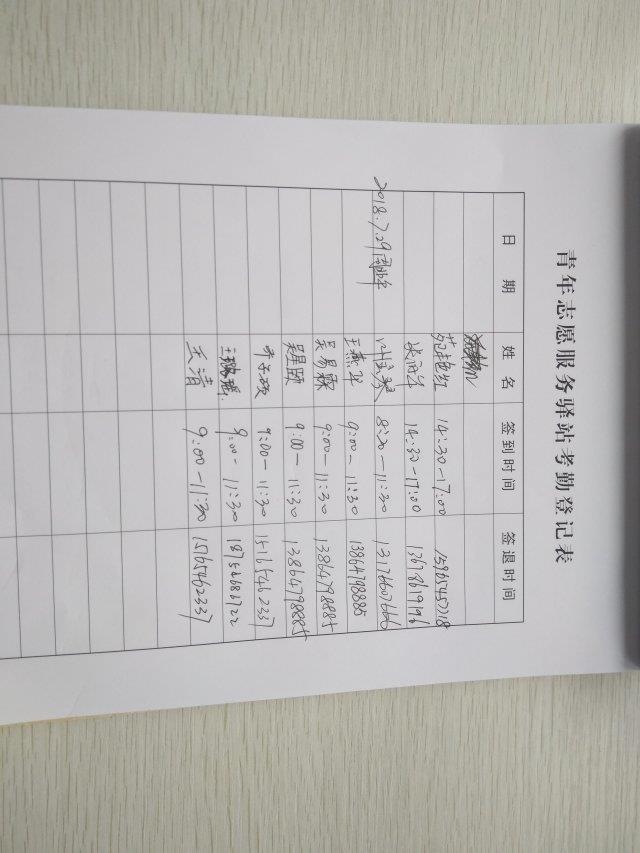 青年志愿服务驿站考勤登记表
日期 姓名 签到时间 签退时间
苑艳红 14:30-17:00 15965457218
14:30-17:00 13678619196
2018.7.29 8:30-11:30 13176607666
王燕华 9:00-11:30 13864798885
吴易霖 9:00-11:30 13864798885
9:00-11:30 13864798885
9:00-11:30 15165462337
9:00-11:30 18754668722
王清 9:00-11:30 15165462337